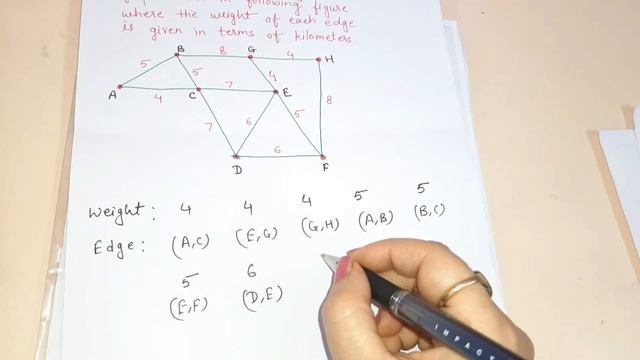 in following figure
where the weight of each edge
is given in terms of kilometers.
B 8 G 4 H
5 5 4
A 4 C 7 E 8
7 6 5
D 6 F
Weight: 4 4 4 5 5
Edge: (A,C) (E,G) (G,H) (A,B) (B,C)
5 6
(E,F) (D,E)
IMPACT